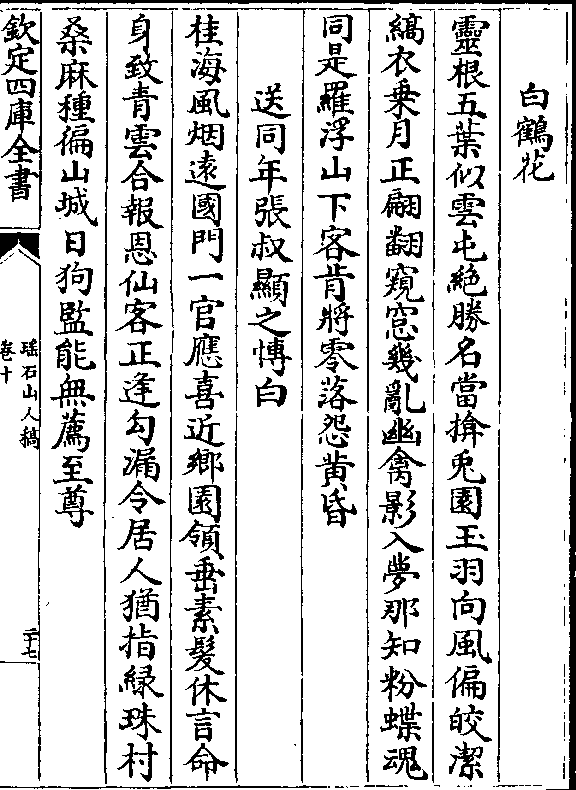 白鶴花
靈根五葉似雲屯絶勝名當揜兎園玉羽向風偏皎潔
縞衣乗月正翩翻窺窓幾亂幽禽影入夢那知粉蝶魂
同是羅浮山下客肯將零落怨黄昏
送同年張叔顯之博白
桂海風烟逺國門一官應喜近鄉園領垂素髪休言命
身致青雲合報恩仙客正逢勾漏令居人猶指緑珠村
桑麻種徧山城日狗監能無薦至尊
欽定四庫全書
瑶石山人稿
卷十
二十七